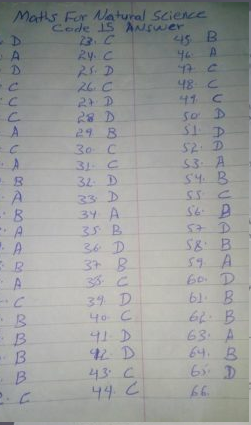 Maths For Natural Science
Code 15 Answer
D
A
D
C
C
C
A
C
A
B
A
B
A
A
B
A
C
B
B
B
B
C
23. C
24. C
25. D
26. C
27. D
28. D
29. B
30. C
31. C
32. D
33. D
34. A
35. B
36. D
37. B
38. C
39. D
40. C
41. D
42. D
43. C
44. C
45. B
46. A
47. C
48. C
49. C
50. D
51. D
52. D
53. A
54. B
55. C
56. B
57. D
58. B
59. A
60. D
61. B
62. B
63. A
64. B
65. D
66.